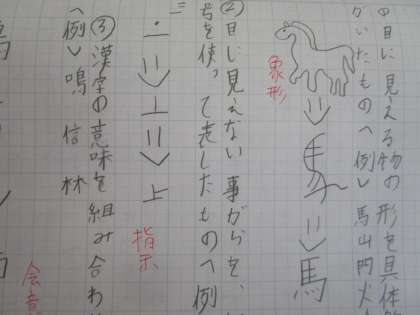 ①目に見える物の形を具体
かいたもの〈例〉馬山門火
⇒ ⇒ 馬
象形
②目に見えない事がらを、
号を使って表したもの〈例
⇒ ⇒ 上
指示
③漢字の意味を組み合わ
〈例〉鳴 信 林
会意